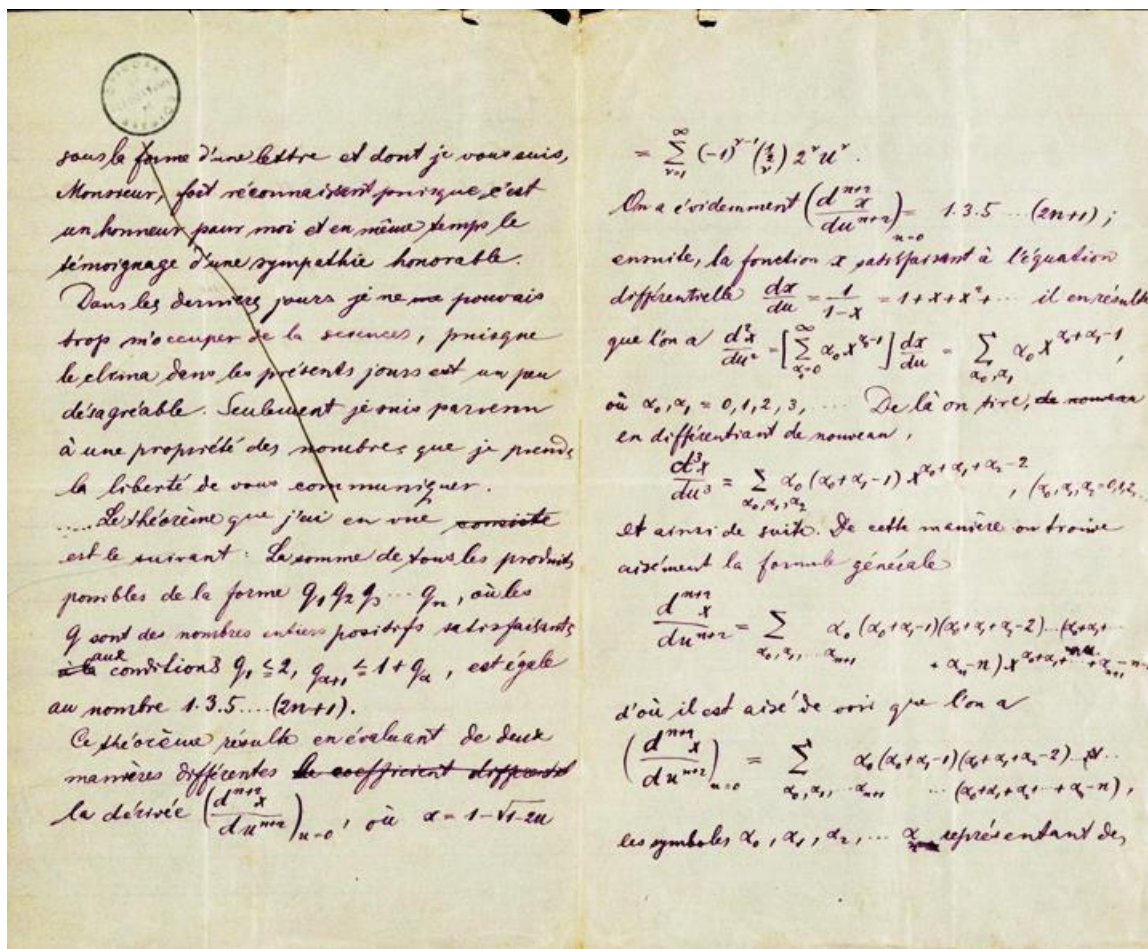 sous la forme d'une lettre et dont je vous suis,
Monsieur, fort réconnaissant puisque c'est
un honneur pour moi et en même temps le
témoignage d'une sympathie honorable.
Dans les derniers jours je ne me pouvais
trop m'occuper de la sciences, puisque
le clima dans les présents jours est un peu
désagréable. Seulement je suis parvenu
à une propriété des nombres que je prends
la liberté de vous communiquer.
..... Le théorème que j'ai en vue consiste
est le suivant : La somme de tous les produits
possibles de la forme q₁ q₂ q₃ ... qₙ, où les
q sont des nombres entiers positifs satisfaisants
à la aux conditions q₁ ≤ 2, qₐ₊₁ ≤ 1 + qₐ, est égale
au nombre 1.3.5....(2n+1).
Ce théorème résulte en évaluant de deux
manières différentes le coefficient différentiel
la dérivée (dⁿ⁺²x/duⁿ⁺²)ᵤ₌₀, où x = 1-√1-2u
= ∑_{ν=1}^{∞} (-1)^{ν-1} (½ ν) 2^ν u^ν.
On a évidemment (dⁿ⁺²x/duⁿ⁺²)ᵤ₌₀ = 1.3.5 ... (2n+1) ;
ensuite, la fonction x satisfaisant à l'équation
différentielle dx/du = 1/(1-x) = 1+x+x²+... il en résulte
que l'on a d²x/du² = [∑_{α₀=0}^{∞} α₀ x^{α₀-1}] dx/du = ∑_{α₀,α₁} α₀ x^{α₀+α₁-1},
où α₀, α₁ = 0,1,2,3,.... De là on tire, de nouveau
en différentiant de nouveau,
d³x/du³ = ∑_{α₀,α₁,α₂} α₀ (α₀+α₁-1) x^{α₀+α₁+α₂-2}, (α₀,α₁,α₂=0,1,2,
et ainsi de suite. De cette manière on trouve
aisément la formule générale
dⁿ⁺²x/duⁿ⁺² = ∑_{α₀,α₁,...αₙ₊₁} α₀ (α₀+α₁-1)(α₀+α₁+α₂-2)...(α₀+α₁+...
+αₙ-n) x^{α₀+α₁+...+αₙ₊₁-n-1}
d'où il est aisé de voir que l'on a
(dⁿ⁺²x/duⁿ⁺²)ᵤ₌₀ = ∑_{α₀,α₁,...αₙ₊₁} α₀(α₀+α₁-1)(α₀+α₁+α₂-2)...
...(α₀+α₁+α₂+...+αₙ-n),
les symboles α₀, α₁, α₂, ... α représentant des